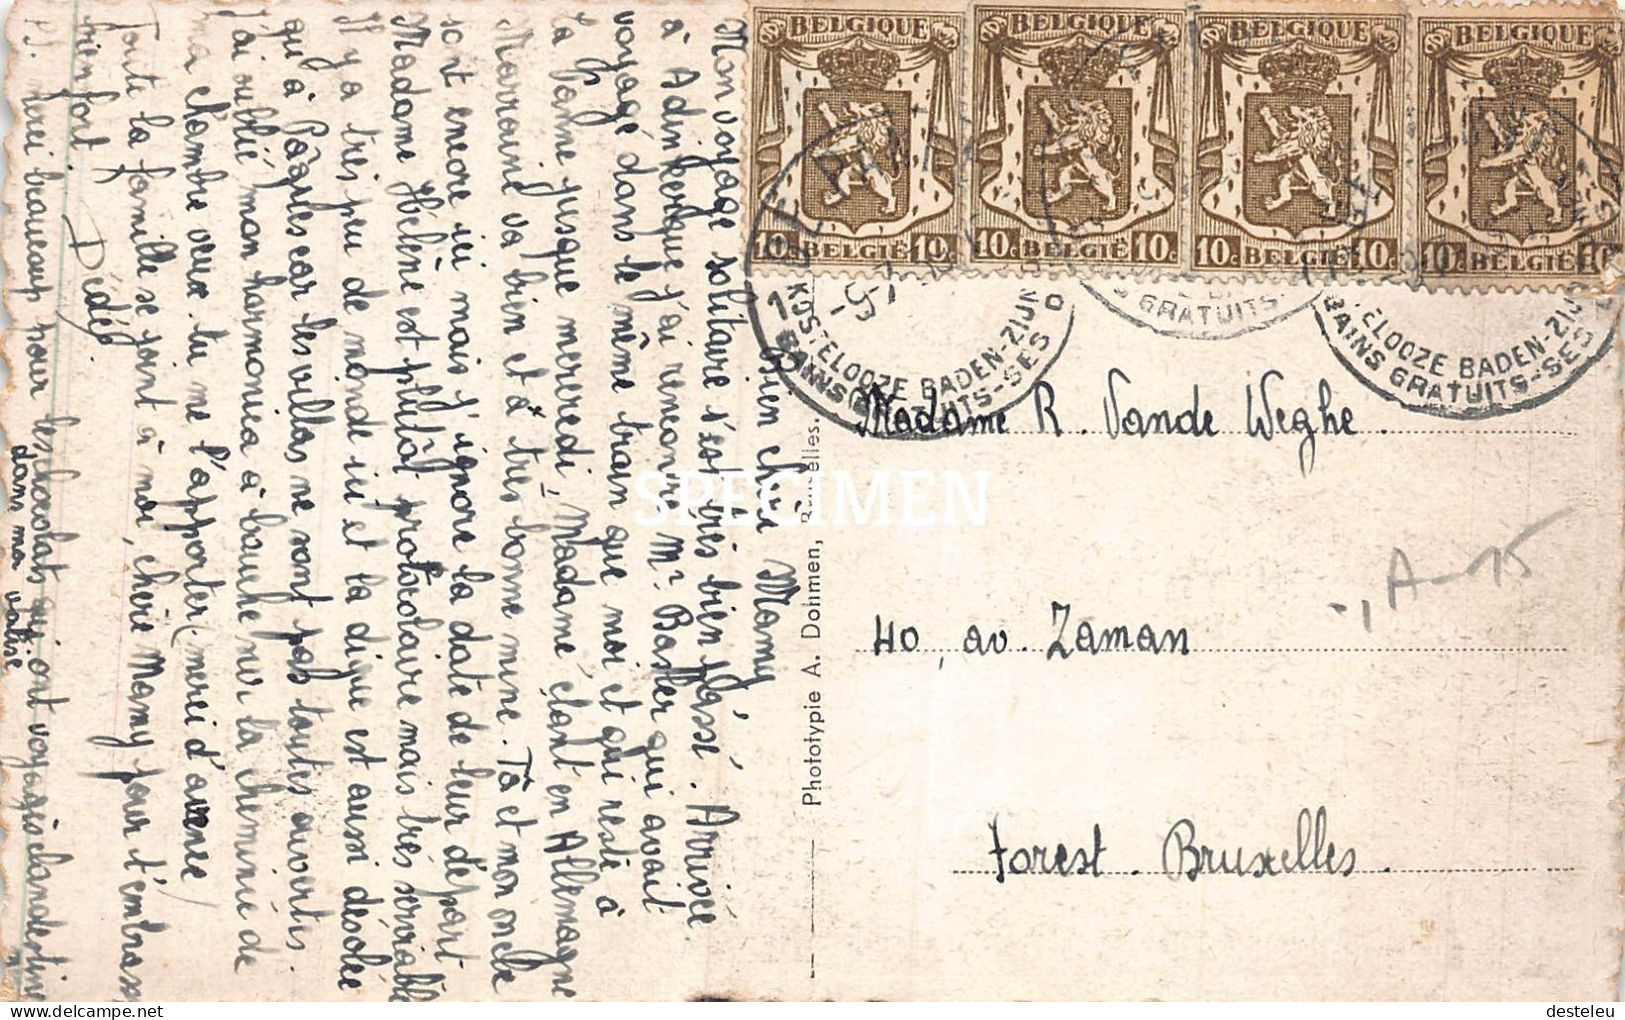 Bien chère Mamy
Mon voyage solitaire s'est très bien passé. Arrivée
à Adinkerque j'ai rencontré Mr Basler qui avait
voyagé dans le même train que moi et qui reste à
La Panne jusque mercredi, Madame étant en Allemagne
Marraine va bien et a très bonne mine. Ta et mon oncle
sont encore ici mais j'ignore la date de leur départ
Madame Hélène est plutôt protocolaire mais très serviable
Il y a très peu de monde ici et la digue est aussi désolée
qu'à Pâques car les villas ne sont pas toutes ouvertes.
J'ai oublié mon harmonica à bouche sur la cheminée de
ma chambre veux-tu me l'apporter (merci d'avance)
Toute la famille se joint à moi, chère Mamy pour t'embrasser
bien fort.
Dédé
P.S. merci beaucoup pour les chocolats qui ont voyagé clandestine
dans ma valise
BELGIQUE
10c BELGIË 10c
BELGIQUE
10c BELGIË 10c
BELGIQUE
10c BELGIË 10c
BELGIQUE
10c BELGIË 10c
KOSTELOOZE BADEN-ZIJN
BAINS GRATUITS-SES
GRATUITS
ELOOZE BADEN-ZIJN
BAINS GRATUITS-SES
Madame R. Vande Weghe
40, av. Zaman
Forest. Bruxelles.
A-15
Phototypie A. Dohmen, Bruxelles.
SPECIMEN
delcampe.net
desteleu